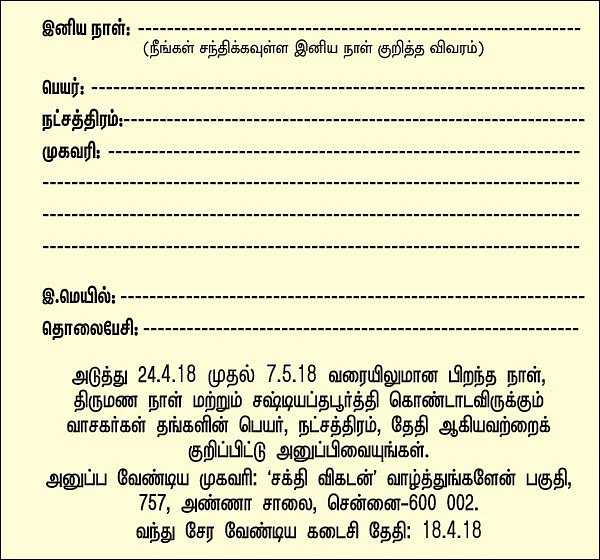 இனிய நாள்: ------------------------------------------------
(நீங்கள் சந்திக்கவுள்ள இனிய நாள் குறித்த விவரம்)
பெயர்: ------------------------------------------------------
நட்சத்திரம்:--------------------------------------------------
முகவரி: ----------------------------------------------------
-----------------------------------------------------------
-----------------------------------------------------------
-----------------------------------------------------------
இ.மெயில்: ---------------------------------------------------
தொலைபேசி: ------------------------------------------------
அடுத்து 24.4.18 முதல் 7.5.18 வரையிலுமான பிறந்த நாள்,
திருமண நாள் மற்றும் சஷ்டியப்தபூர்த்தி கொண்டாடவிருக்கும்
வாசகர்கள் தங்களின் பெயர், நட்சத்திரம், தேதி ஆகியவற்றைக்
குறிப்பிட்டு அனுப்பிவையுங்கள்.
அனுப்ப வேண்டிய முகவரி: ‘சக்தி விகடன்’ வாழ்த்துங்களேன் பகுதி,
757, அண்ணா சாலை, சென்னை-600 002.
வந்து சேர வேண்டிய கடைசி தேதி: 18.4.18